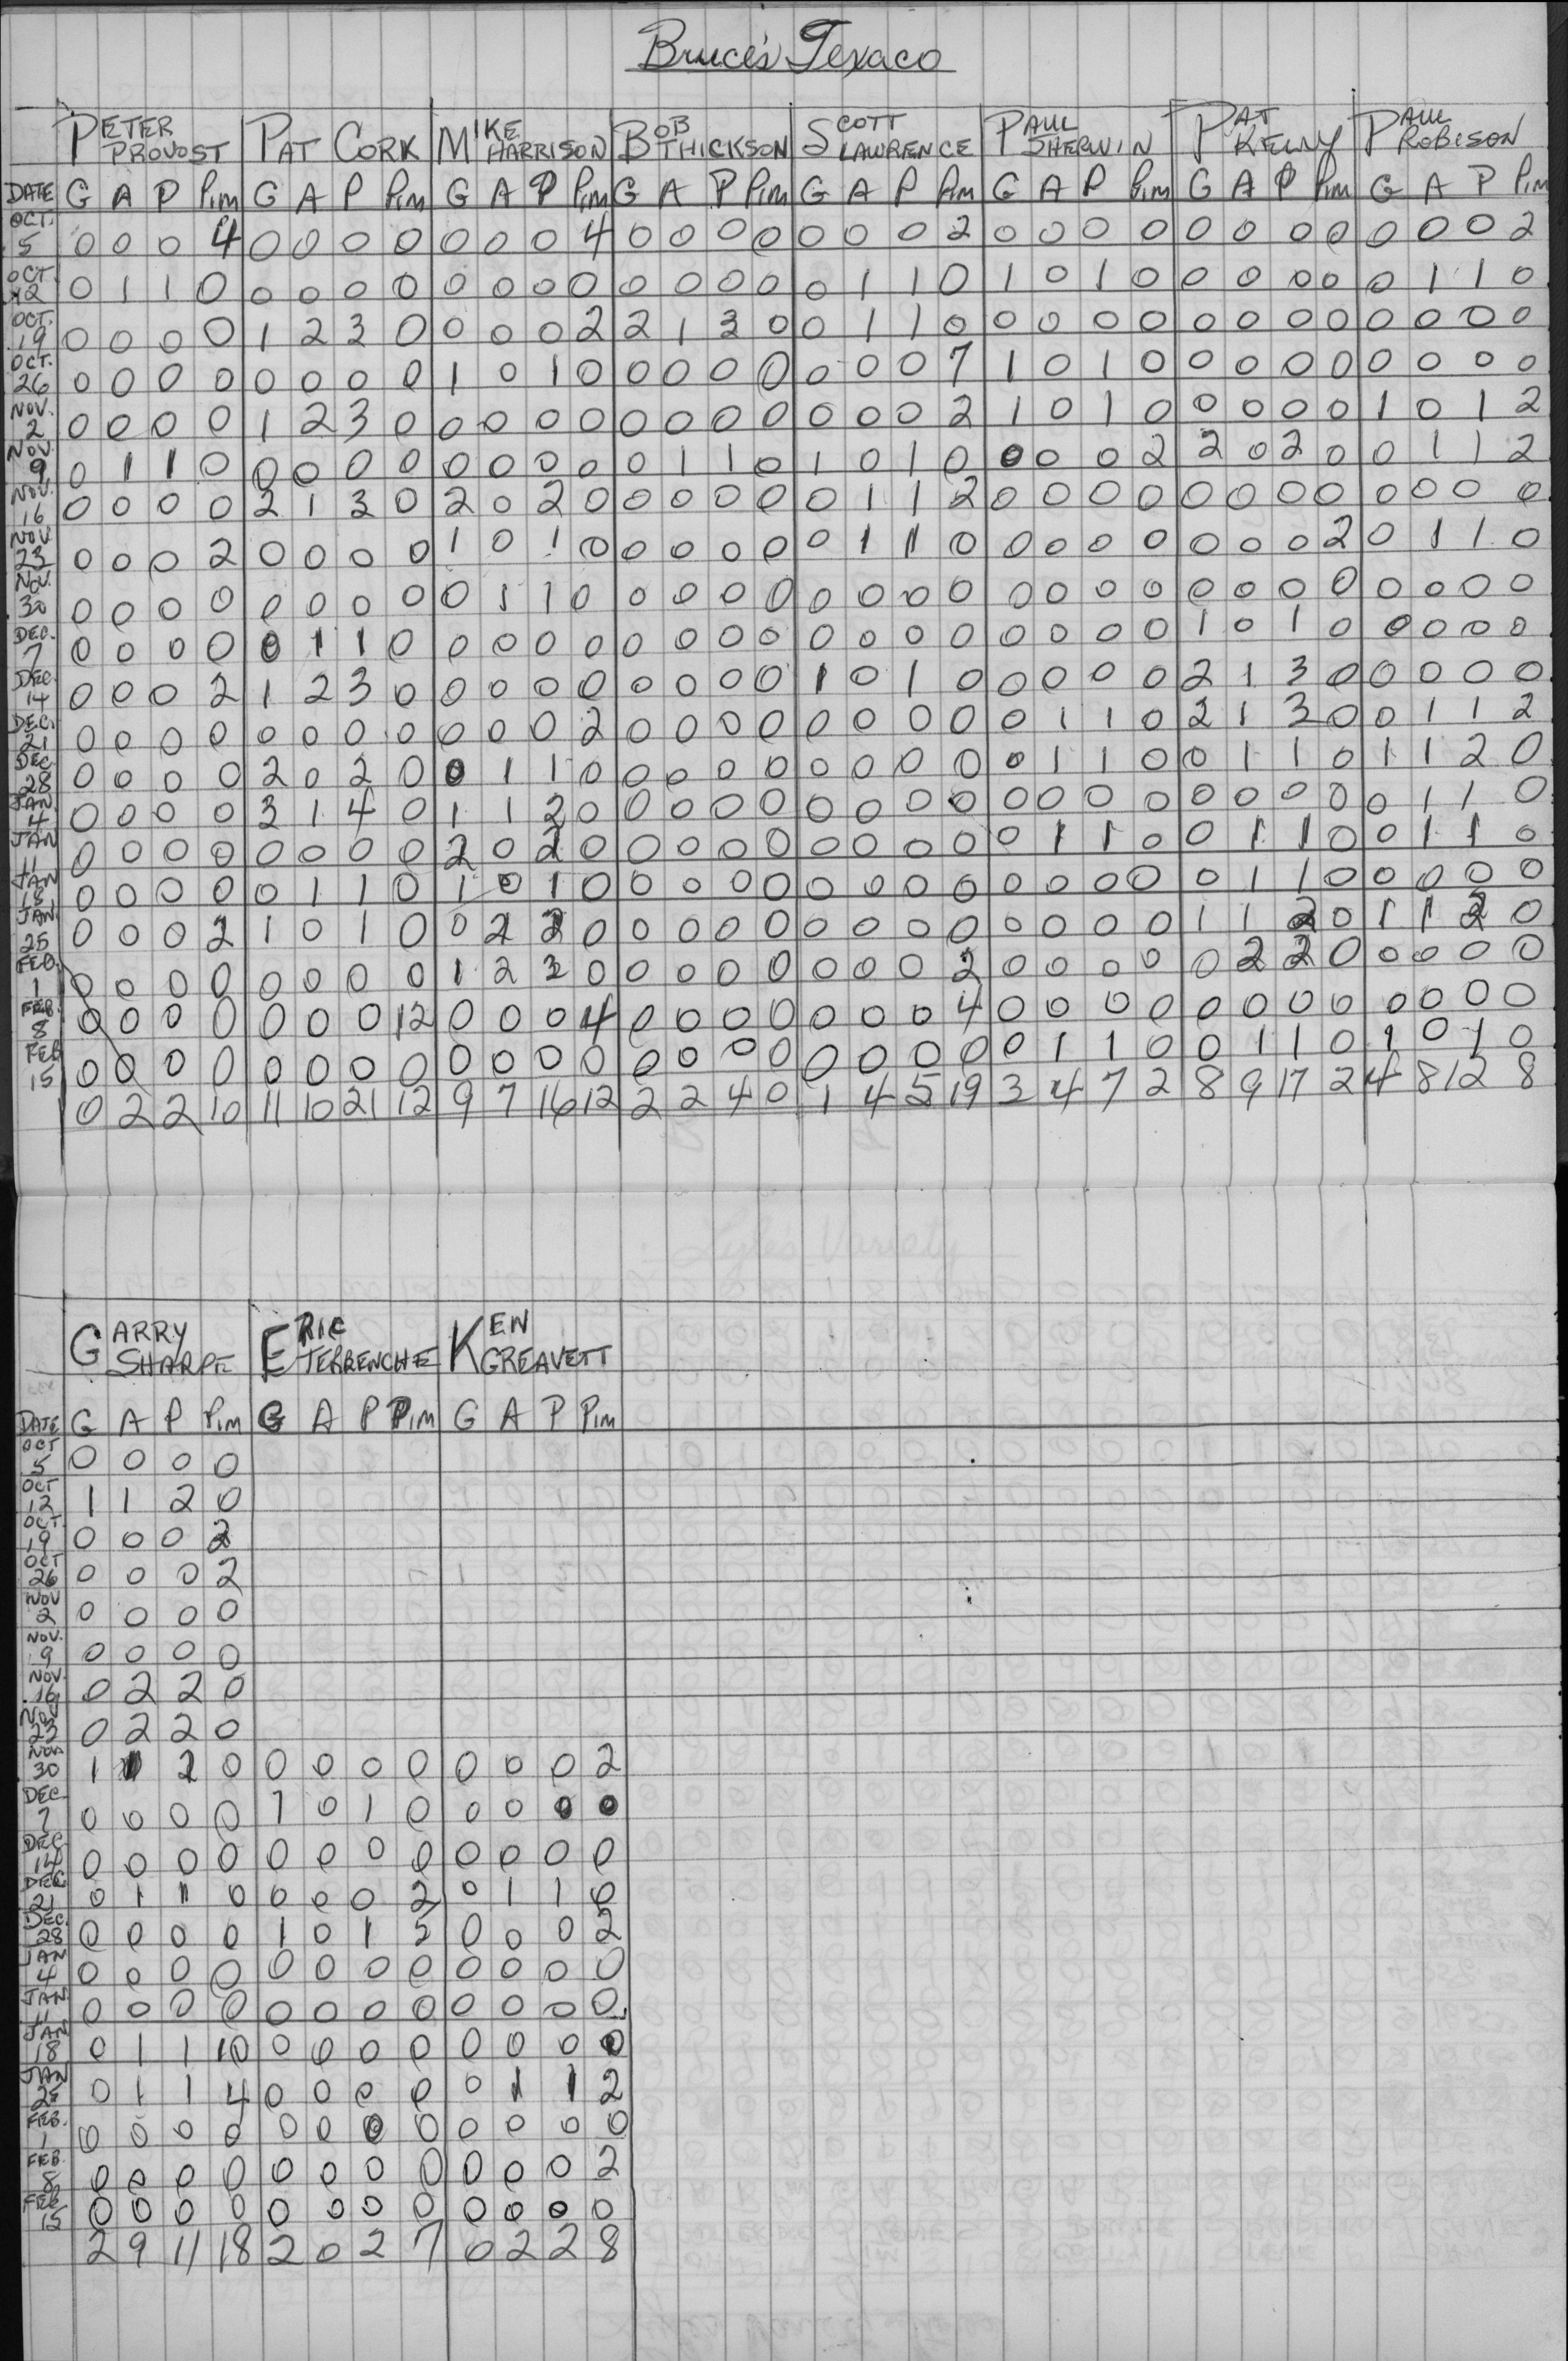 Bruce's Texaco
PETER PROVOST PAT CORK MIKE HARRISON BOB THICKSON SCOTT LAWRENCE PAUL SHERWIN PAT KELLY PAUL ROBISON
DATE G A P Pim G A P Pim G A P Pim G A P Pim G A P Pim G A P Pim G A P Pim G A P Pim
OCT. 5 0 0 0 4 0 0 0 0 0 0 0 4 0 0 0 0 0 0 0 2 0 0 0 0 0 0 0 0 0 0 0 2
OCT. 12 0 1 1 0 0 0 0 0 0 0 0 0 0 0 0 0 0 1 1 0 1 0 1 0 0 0 0 0 0 1 1 0
OCT. 19 0 0 0 0 1 2 3 0 0 0 0 2 2 1 3 0 0 1 1 0 0 0 0 0 0 0 0 0 0 0 0 0
OCT. 26 0 0 0 0 0 0 0 0 1 0 1 0 0 0 0 0 0 0 0 7 1 0 1 0 0 0 0 0 0 0 0 0
NOV. 2 0 0 0 0 1 2 3 0 0 0 0 0 0 0 0 0 0 0 0 2 1 0 1 0 0 0 0 0 1 0 1 2
NOV. 9 0 1 1 0 0 0 0 0 0 0 0 0 0 1 1 0 1 0 1 0 0 0 0 2 2 0 2 0 0 1 1 2
NOV. 16 0 0 0 0 2 1 3 0 2 0 2 0 0 0 0 0 0 1 1 2 0 0 0 0 0 0 0 0 0 0 0 0
NOV. 23 0 0 0 2 0 0 0 0 1 0 1 0 0 0 0 0 0 1 1 0 0 0 0 0 0 0 0 2 0 1 1 0
NOV. 30 0 0 0 0 0 0 0 0 0 1 1 0 0 0 0 0 0 0 0 0 0 0 0 0 0 0 0 0 0 0 0 0
DEC. 7 0 0 0 0 0 1 1 0 0 0 0 0 0 0 0 0 0 0 0 0 0 0 0 0 1 0 1 0 0 0 0 0
DEC. 14 0 0 0 2 1 2 3 0 0 0 0 0 0 0 0 0 1 0 1 0 0 0 0 0 2 1 3 0 0 0 0 0
DEC. 21 0 0 0 0 0 0 0 0 0 0 0 2 0 0 0 0 0 0 0 0 0 1 1 0 2 1 3 0 0 1 1 2
DEC 28 0 0 0 0 2 0 2 0 0 1 1 0 0 0 0 0 0 0 0 0 0 1 1 0 0 1 1 0 1 1 2 0
JAN. 4 0 0 0 0 3 1 4 0 1 1 2 0 0 0 0 0 0 0 0 0 0 0 0 0 0 0 0 0 0 1 1 0
JAN 11 0 0 0 0 0 0 0 0 2 0 2 0 0 0 0 0 0 0 0 0 0 1 1 0 0 1 1 0 0 1 1 0
JAN 18 0 0 0 0 0 1 1 0 1 0 1 0 0 0 0 0 0 0 0 0 0 0 0 0 0 1 1 0 0 0 0 0
JAN. 25 0 0 0 2 1 0 1 0 0 2 2 0 0 0 0 0 0 0 0 0 0 0 0 0 1 1 2 0 1 1 2 0
FEB. 1 0 0 0 0 0 0 0 0 1 2 3 0 0 0 0 0 0 0 0 2 0 0 0 0 0 2 2 0 0 0 0 0
FEB. 8 0 0 0 0 0 0 0 12 0 0 0 4 0 0 0 0 0 0 0 4 0 0 0 0 0 0 0 0 0 0 0 0
FEB 15 0 0 0 0 0 0 0 0 0 0 0 0 0 0 0 0 0 0 0 0 0 1 1 0 0 1 1 0 1 0 1 0
0 2 2 10 11 10 21 12 9 7 16 12 2 2 4 0 1 4 5 19 3 4 7 2 8 9 17 2 4 8 12 8
Lyle's Variety
GARRY SHARPE ERIC TERRENCHE KEN GREAVETT
DATE G A P Pim G A P Pim G A P Pim
OCT 5 0 0 0 0
OCT 12 1 1 2 0
OCT. 19 0 0 0 2
OCT 26 0 0 0 2
NOV 2 0 0 0 0
NOV. 9 0 0 0 0
NOV. 16 0 2 2 0
NOV 23 0 2 2 0
NOV. 30 1 1 2 0 0 0 0 0 0 0 0 2
DEC. 7 0 0 0 0 1 0 1 0 0 0 0 0
DEC. 14 0 0 0 0 0 0 0 0 0 0 0 0
DEC 21 0 1 1 0 0 0 0 2 0 1 1 0
DEC. 28 0 0 0 0 1 0 1 5 0 0 0 2
JAN 4 0 0 0 0 0 0 0 0 0 0 0 0
JAN. 11 0 0 0 0 0 0 0 0 0 0 0 0
JAN 18 0 1 1 10 0 0 0 0 0 0 0 0
JAN 25 0 1 1 4 0 0 0 0 0 1 1 2
FEB. 1 0 0 0 0 0 0 0 0 0 0 0 0
FEB. 8 0 0 0 0 0 0 0 0 0 0 0 2
FEB. 15 0 0 0 0 0 0 0 0 0 0 0 0
2 9 11 18 2 0 2 7 0 2 2 8